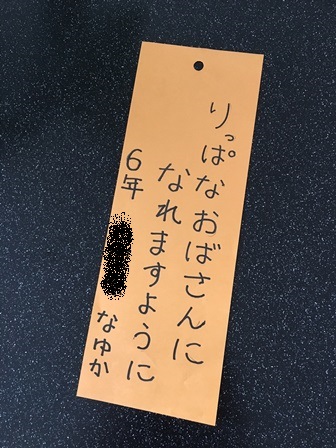 りっぱなおばさんに
なれますように
6年 なゆか